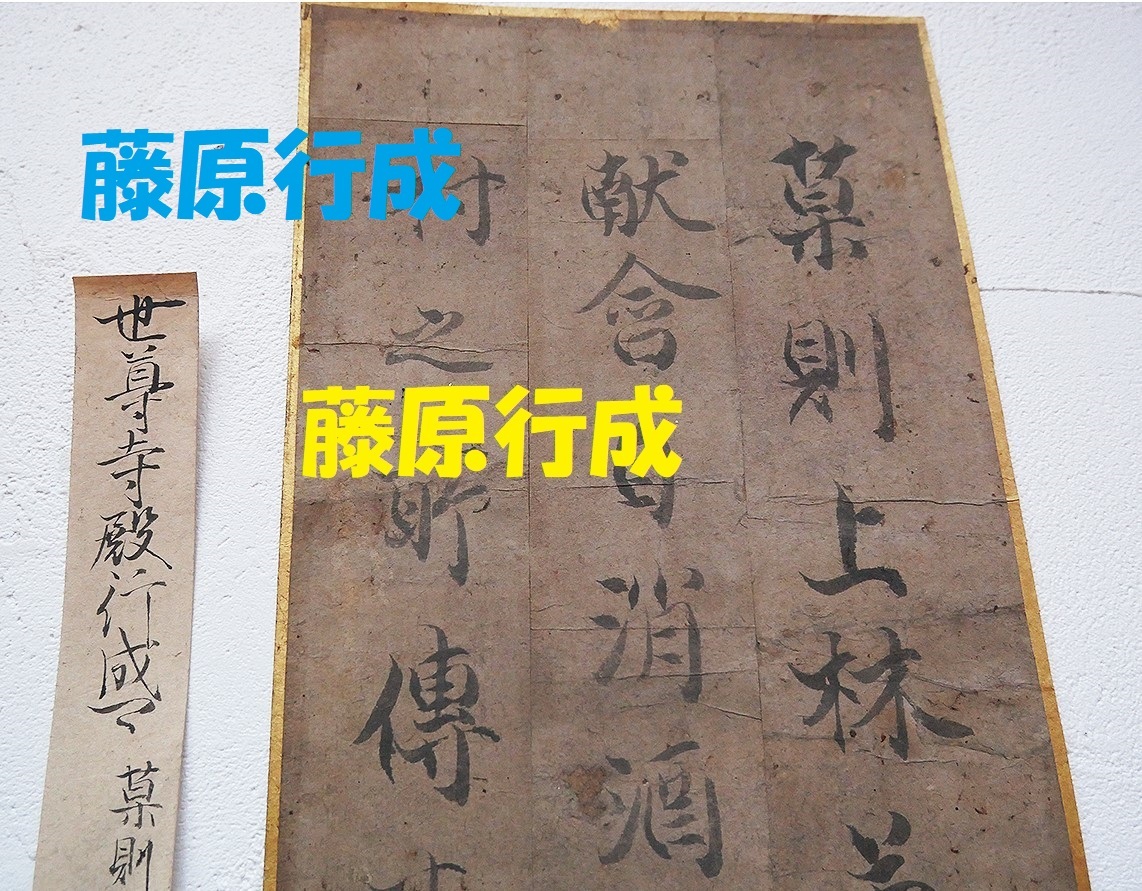 藤原行成
藤原行成
菓則上林
献含自消酒
村之所傳
世尊寺殿行成 菓則